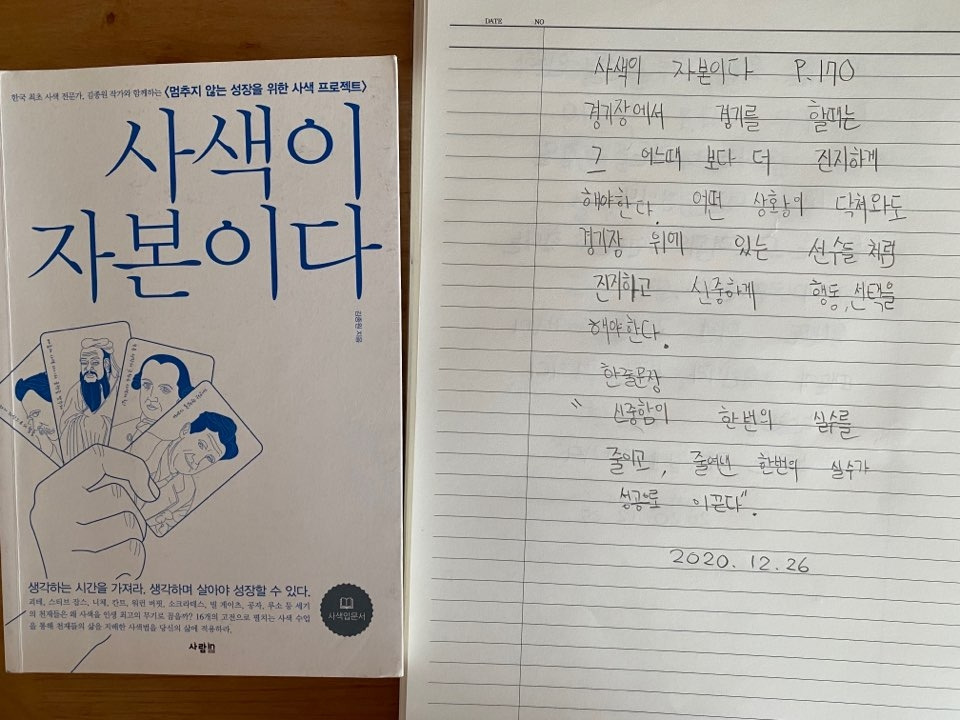 한국 최초 사색 전문가, 김종원 작가와 함께하는 〈멈추지 않는 성장을 위한 사색 프로젝트〉
사색이
자본이다
김종원 지음
생각하는 시간을 가져라, 생각하며 살아야 성장할 수 있다.
괴테, 스티브 잡스, 니체, 칸트, 워런 버핏, 소크라테스, 빌 게이츠, 공자, 루소 등 세기
의 천재들은 왜 사색을 인생 최고의 무기로 꼽을까? 16개의 고전으로 펼치는 사색 수업
을 통해 천재들의 삶을 지배한 사색법을 당신의 삶에 적용하라.
사색입문서
사람in
DATE NO
사색이 자본이다 P.170
경기장에서 경기를 할때는
그 어느때 보다 더 진지하게
해야한다. 어떤 상황이 닥쳐와도
경기장 위에 있는 선수들 처럼
진지하고 신중하게 행동,선택을
해야한다.
한줄문장
"신중함이 한번의 실수를
줄이고, 줄여낸 한번의 실수가
성공으로 이끈다".
2020.12.26